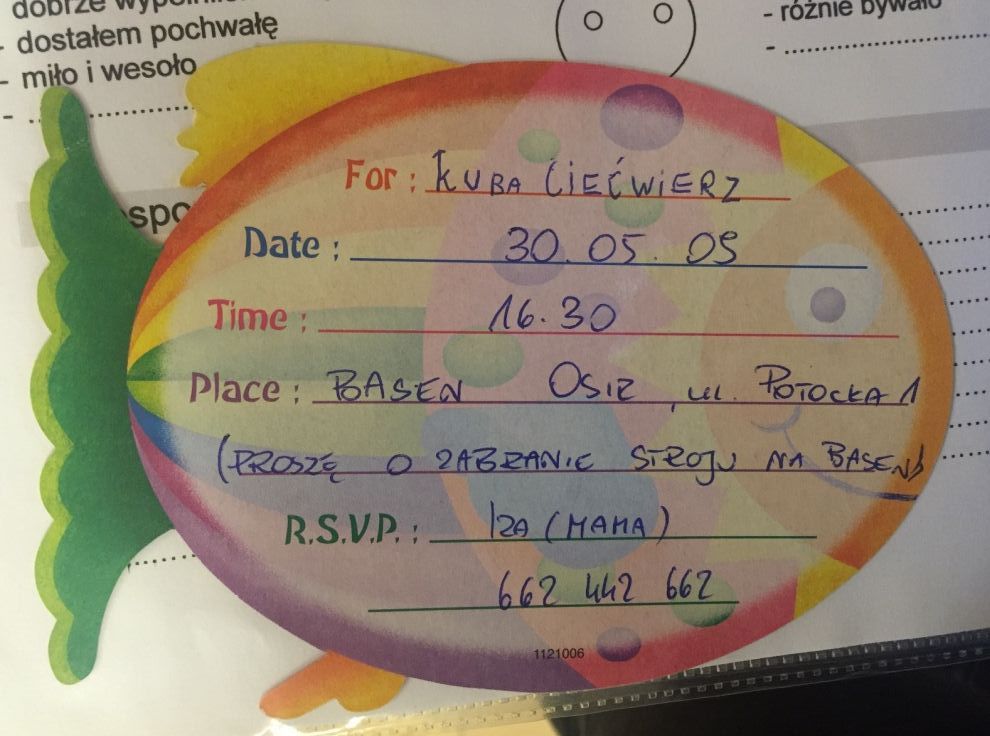 dobrze
- dostałem pochwałę
- miło i wesoło
- ..............................
- różnie bywało
- ..............................
spo
For : KUBA ĆIEĆWIERZ
Date : 30.05.09
Time : 16.30
Place : BASEN OSIR, ul. POTOCKA 1
(PROSZĘ O ZABRANIE STROJU NA BASEN)
R.S.V.P. : IZA (MAMA)
662 442 662
1121006